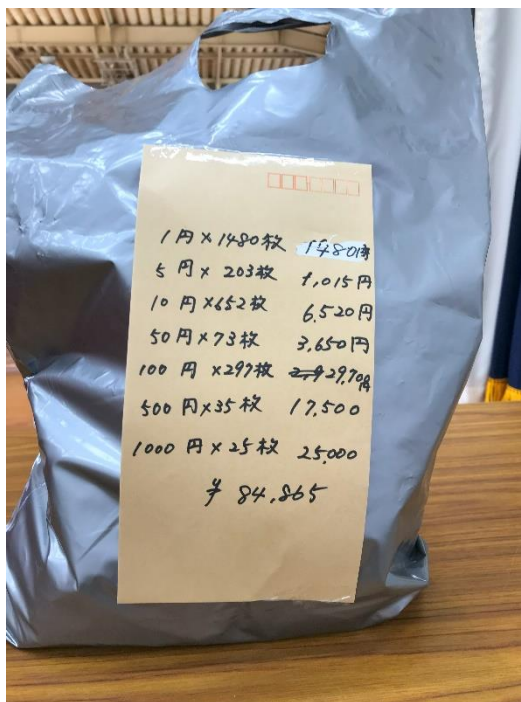 1円×1480枚 1480円
5円×203枚 1,015円
10円×652枚 6,520円
50円×73枚 3,650円
100円×297枚 29,700円
500円×35枚 17,500
1000円×25枚 25,000
¥84,865